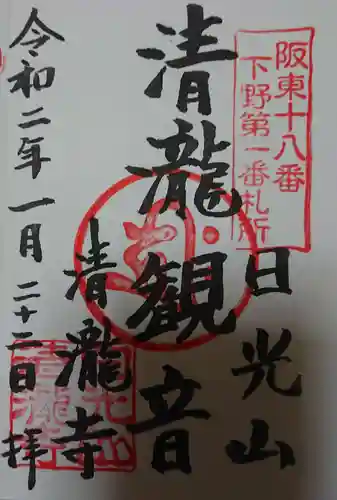 阪東十八番
下野第一番札所
日光山
清瀧観音
清瀧寺
令和二年一月二十二日 拝